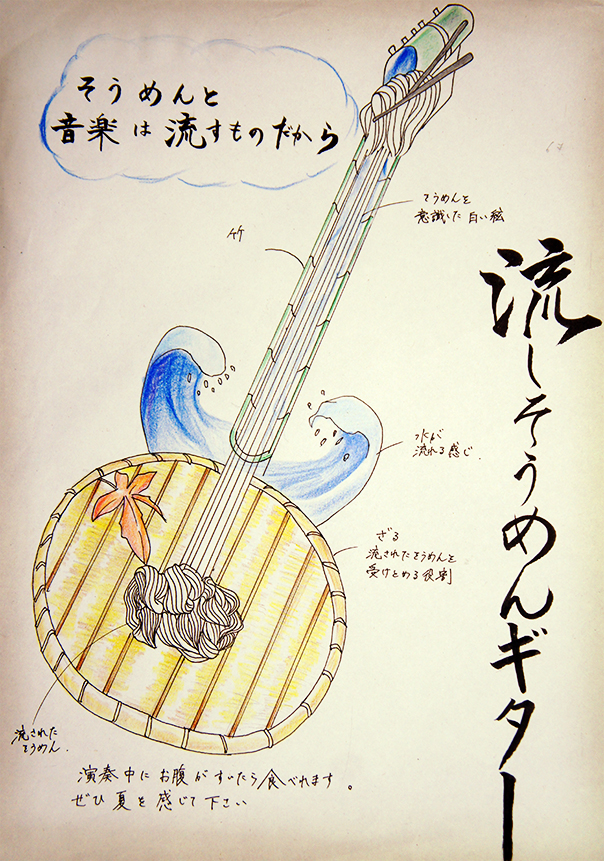 そうめんと
音楽は流すものだから
そうめんを
意識した白い絃
竹
流しそうめんギター
水が
流れる感じ.
ざる
流されたそうめんを
受けとめる役割
流された
そうめん.
演奏中にお腹がすいたら食べれます。
ぜひ夏を感じて下さい